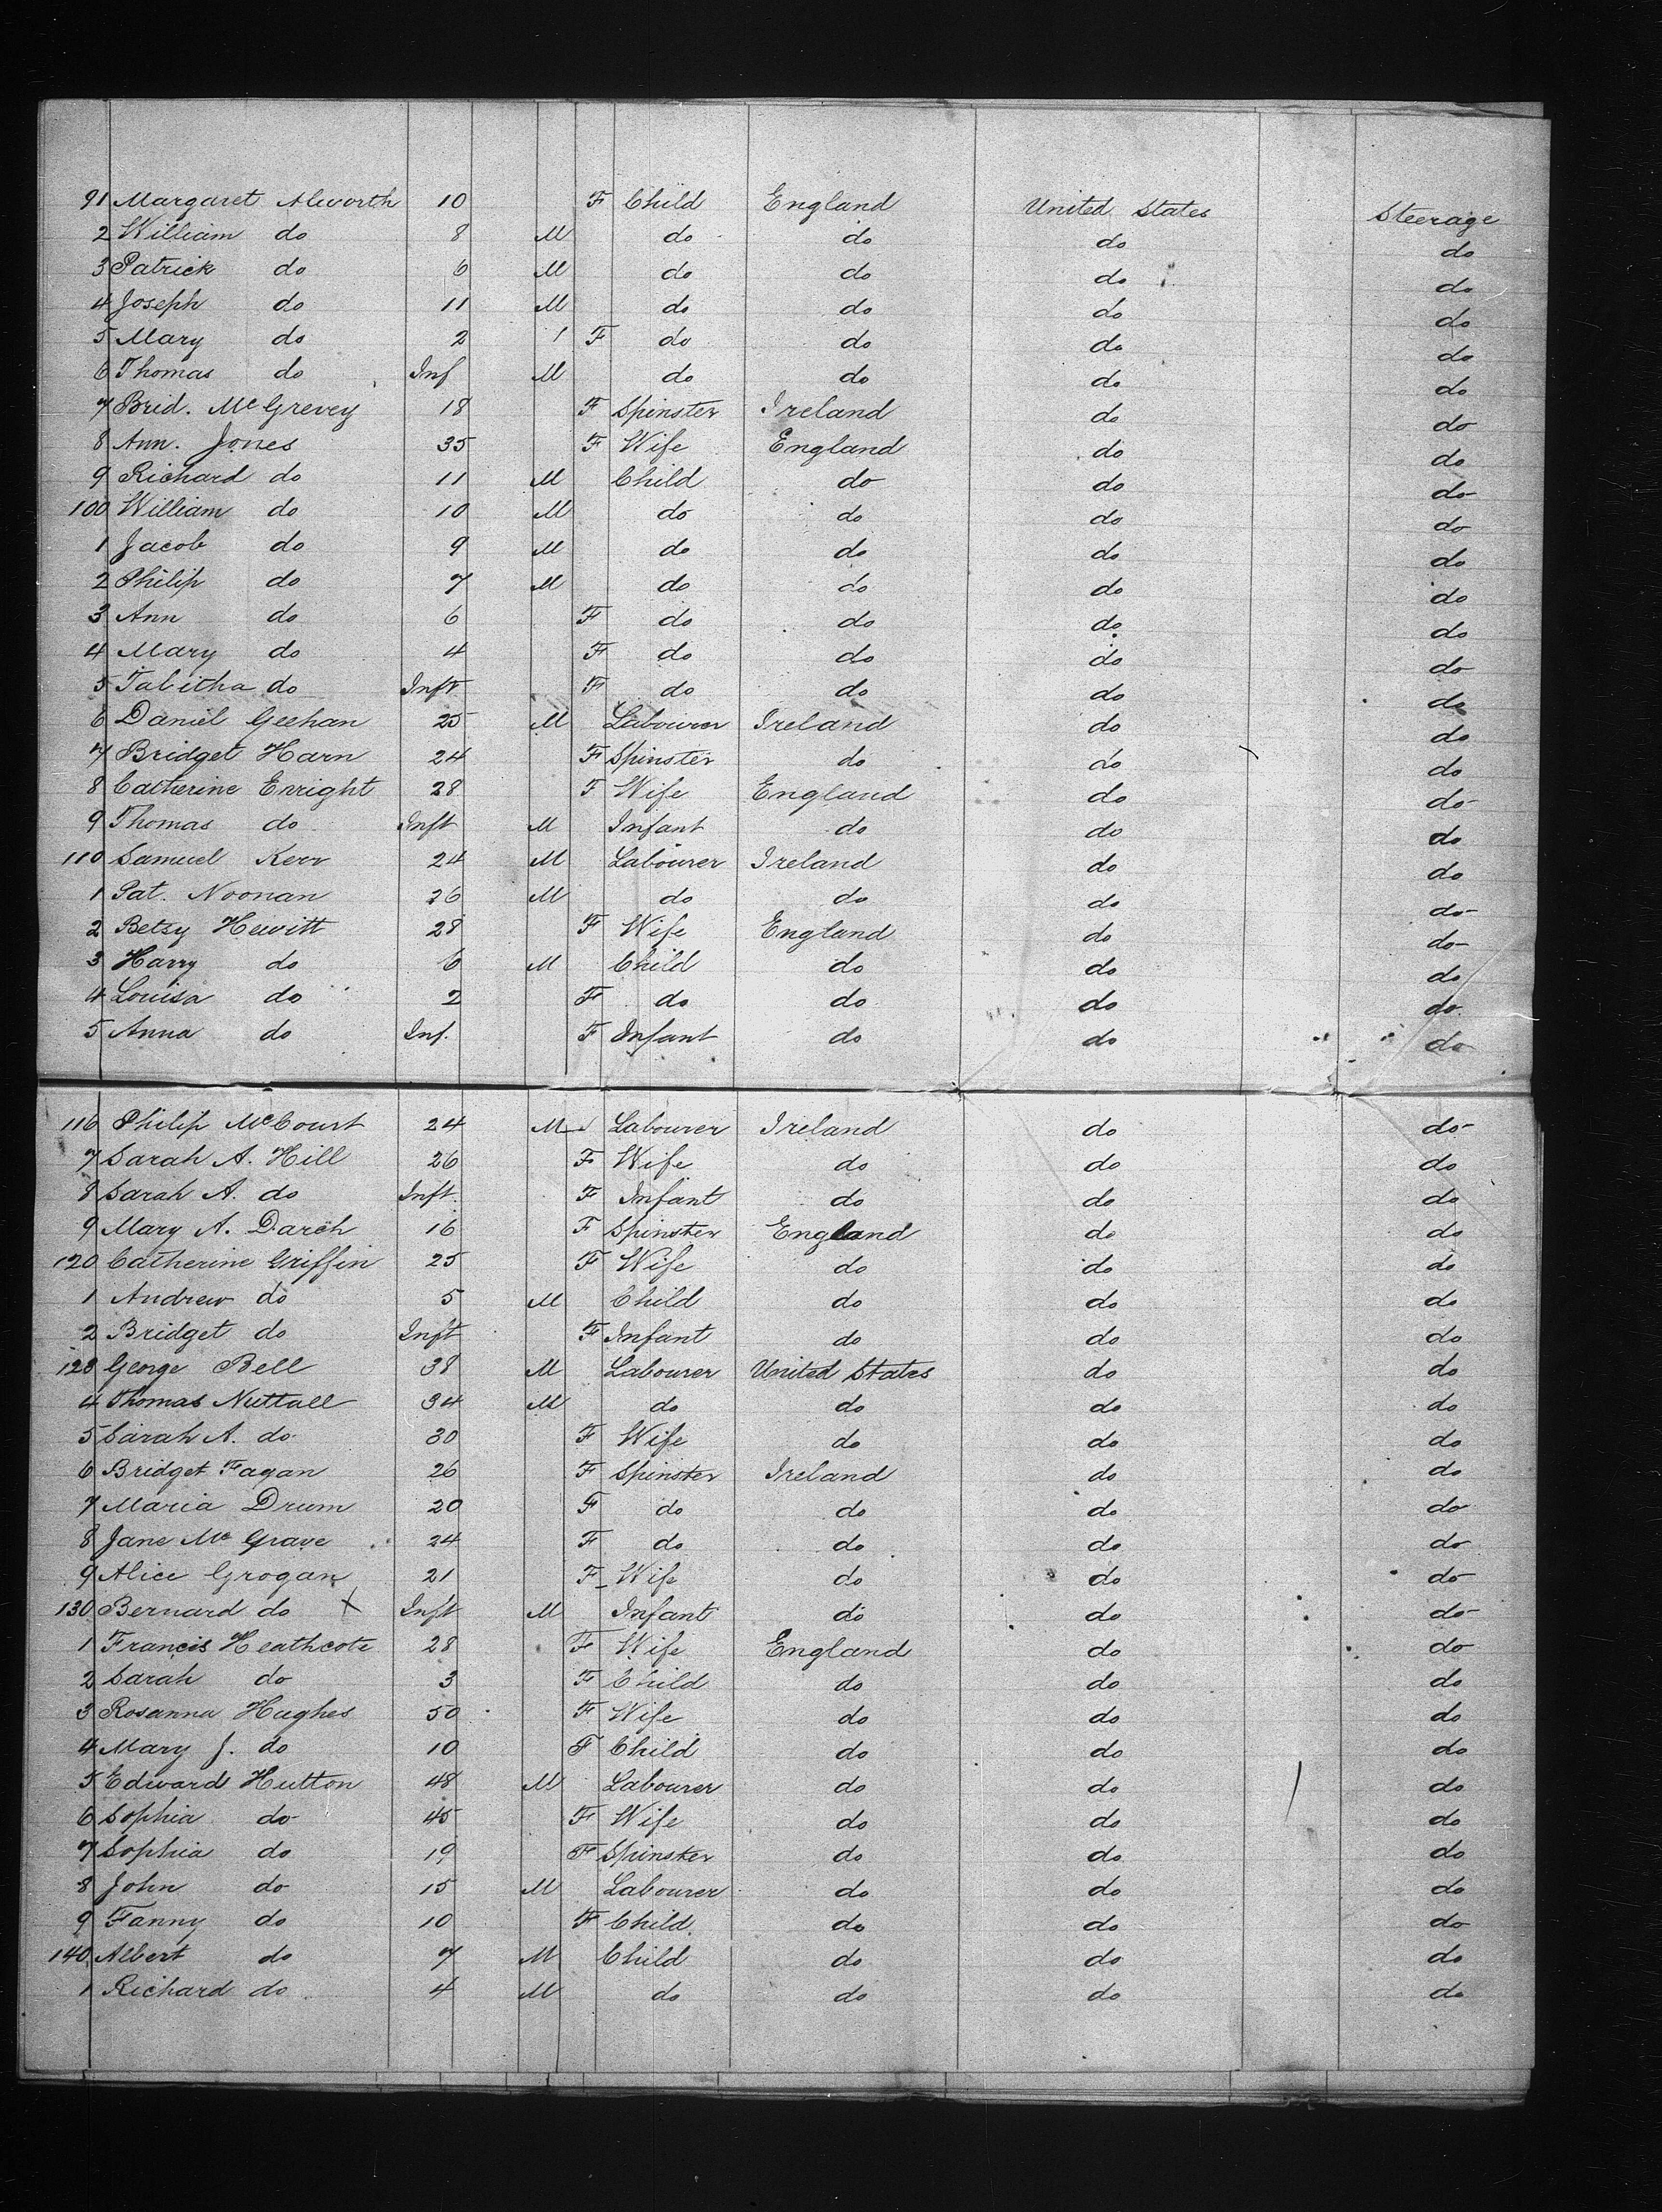 91 Margaret Alworth 10 F Child England United States Steerage
2 William do 8 M do do do do
3 Patrick do 6 M do do do do
4 Joseph do 11 M do do do do
5 Mary do 2 F do do do do
6 Thomas do Inf M do do do do
7 Brid. McGrevey 18 F Spinster Ireland do do
8 Ann. Jones 35 F Wife England do do
9 Richard do 11 M Child do do do
100 William do 10 M do do do do
1 Jacob do 9 M do do do do
2 Philip do 7 M do do do do
3 Ann do 6 F do do do do
4 Mary do 4 F do do do do
5 Tabitha do Inft F do do do do
6 Daniel Geehan 25 M Labourer Ireland do do
7 Bridget Harn 24 F Spinster do do do
8 Catherine Enright 28 F Wife England do do
9 Thomas do Inft M Infant do do do
110 Samuel Kerr 24 M Labourer Ireland do do
1 Pat. Noonan 26 M do do do do
2 Betsy Hewitt 28 F Wife England do do
3 Harry do 6 M Child do do do
4 Louisa do 2 F do do do do
5 Anna do Inf. F Infant do do do
116 Philip McCourt 24 M Labourer Ireland do do
7 Sarah A. Hill 26 F Wife do do do
8 Sarah A. do Inft. F Infant do do do
9 Mary A. Darch 16 F Spinster England do do
120 Catherine Griffin 25 F Wife do do do
1 Andrew do 5 M Child do do do
2 Bridget do Inft F Infant do do do
123 George Bell 38 M Labourer United States do do
4 Thomas Nuttall 34 M do do do do
5 Sarah A. do 30 F Wife do do do
6 Bridget Fagan 26 F Spinster Ireland do do
7 Maria Drum 20 F do do do do
8 Jane Mc Grave 24 F do do do do
9 Alice Grogan 21 F Wife do do do
130 Bernard do X Inft M Infant do do do
1 Francis Heathcote 28 F Wife England do do
2 Sarah do 3 F Child do do do
3 Rosanna Hughes 50 F Wife do do do
4 Mary J. do 10 F Child do do do
5 Edward Hutton 48 M Labourer do do do
6 Sophia do 45 F Wife do do do
7 Sophia do 19 F Spinster do do do
8 John do 15 M Labourer do do do
9 Fanny do 10 F Child do do do
140 Albert do 7 M Child do do do
1 Richard do 4 M do do do do